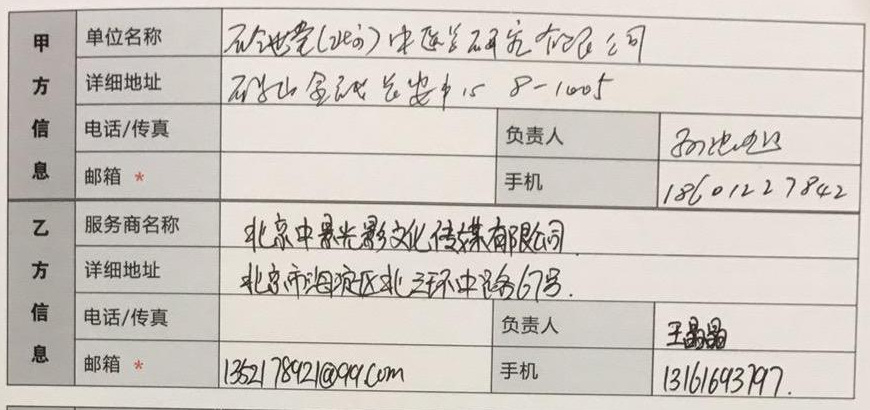 甲方信息
单位名称 (北京)中医学研究有限公司
详细地址 石景山金融长安中心 8-1005
电话/传真
负责人
邮箱 *
手机 18601227842
乙方信息
服务商名称 北京中景光影文化传媒有限公司
详细地址 北京市海淀区北三环中路67号.
电话/传真
负责人 王晶晶
邮箱 * 1352178921@qq.com
手机 13161693797.